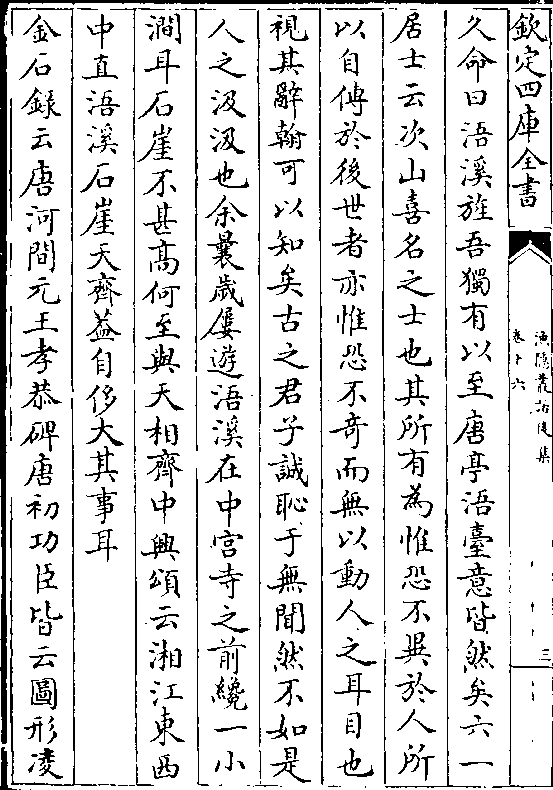 欽定四庫全書
漁隱叢話後集
卷十六
三
久命曰浯溪旌吾獨有以至唐亭浯臺意皆然矣六一
居士云次山喜名之士也其所有為惟恐不異於人所
以自傳於後世者亦惟恐不奇而無以動人之耳目也
視其辭翰可以知矣古之君子誠恥于無聞然不如是
人之汲汲也余曩歲屢遊浯溪在中宫寺之前纔一小
澗耳石崖不甚髙何至與天相齊中興頌云湘江東西
中直浯溪石崖天齊葢自侈大其事耳
金石錄云唐河間元王孝恭碑唐初功臣皆云圖形凌